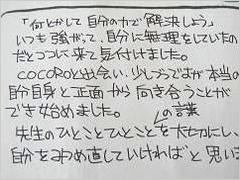 「何とかして自分の力で解決しよう」
いつも強がって、自分に無理をしていたの
だとつくづく来て気付けました。
COCOROと出会い、少しづつですが本当の
自分自身と正面から向き合うことが
でき始めました。
の言葉
先生のひとことひとことを大切にし、
自分をみつめ直していければと思い